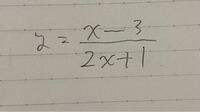 y = \frac{x-3}{2x+1}